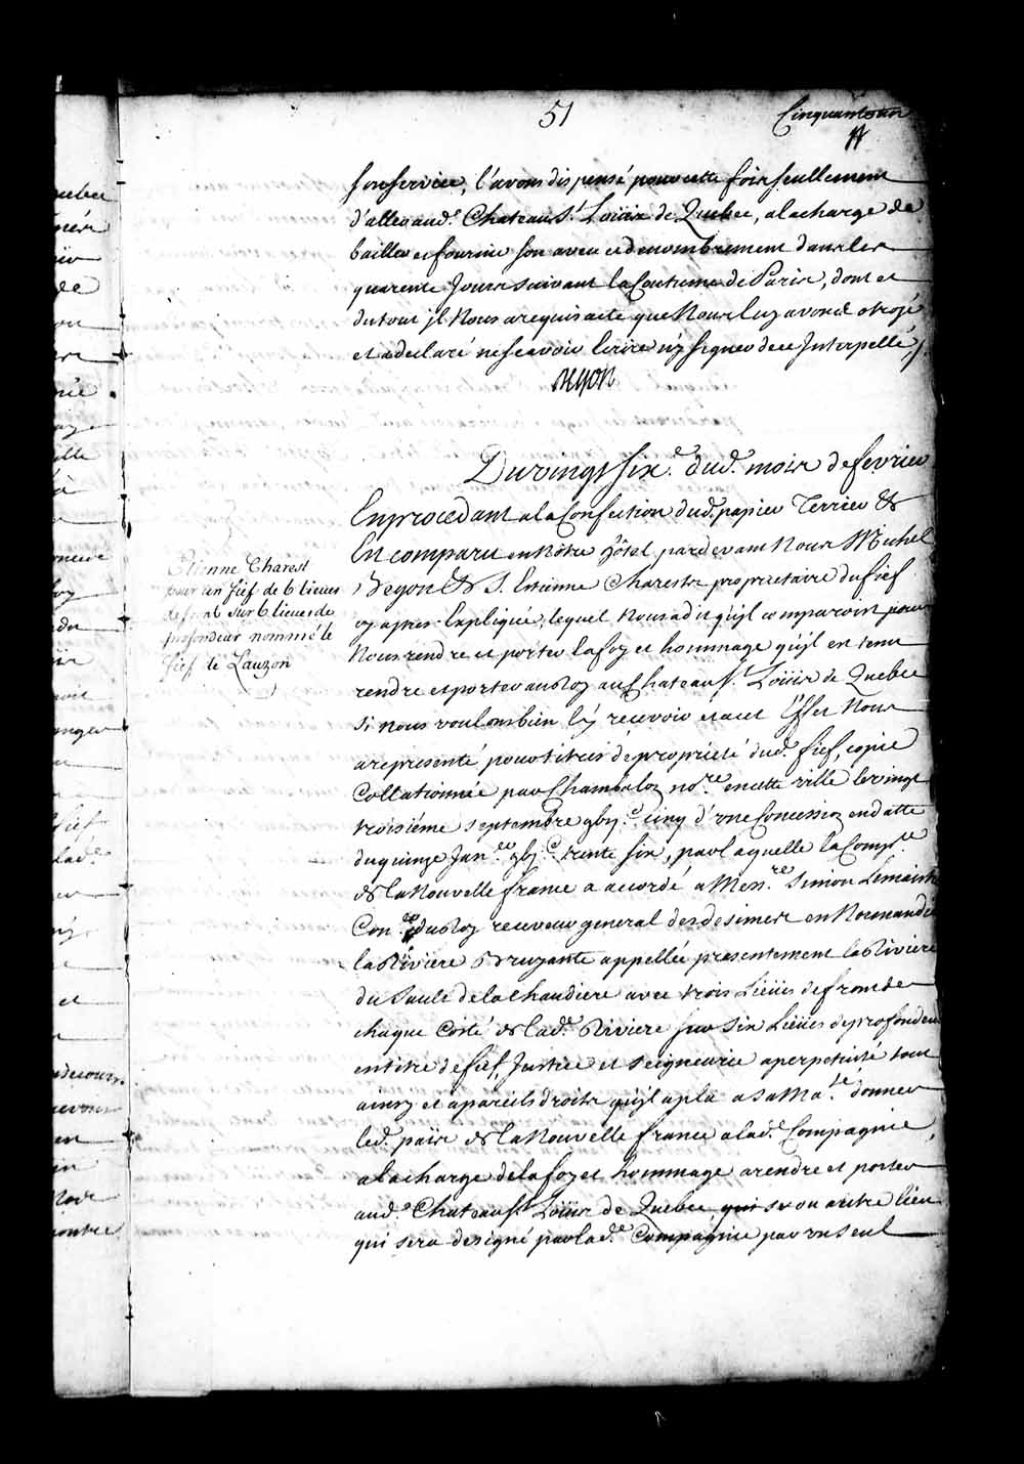 51
Cinquante un
son service, l'avons dispensé pour cette fois seullement
d'aller aud.e Chateau St Loüis de Quebec, a la charge de
bailler et fournir son aveu et denombrement dans les
quarente Jours suivant la Coutume de Paris, dont et
du tout jl Nous a requis acte que Nous luy avons octroyé
et a declaré ne scavoir Ecrire n'y signer de ce Jnterpellé,
Begon
Du vingt six.e dud. mois de fevrier
En procedant a la Confection dud. papier Terrier &
Est comparu en Nôtre hôtel, pardevant Nous Michel
Begon & S. Estienne Charestz proprietaire du fief
cy apres Expliqué, lequel Nous a dit qu'jl comparoist pour
Nous rendre et porter la foy et hommage qu'jl est tenu
rendre et porter au Roy au Chateau St Loüis de Quebec
si nous voulons bien l'y recevoir et a cet Effet Nous
a representé pour titres de propriété dud. fief, copie
Collationnée par Chambaloz no.re en cette ville le vingt
troisiéme septembre gbij.c cinq d'vne Concession en datte
du quinze Jan.er gbj.c trente six, par laquelle la Comp.e
de la Nouvelle france a accordé a Mess.re Simon Lemaistre
Con.er du Roy receveur general des desimes en Normandie
la Riviere Bruyante appellée presentement la Riviere
du Sault de la Chaudiere avec trois Lieües de front de
chaque Costé de lad.e Riviere sur six Lieües de profondeur
en titre de fief, Justice et Seigneurie a perpetuité tout
ainsy et a pareils droits qu'jl a pla a sa Ma.té donner
led. païs de la Nouvelle france a lad. Compagnie,
a la charge de la foy et hommage a rendre et porter
aud.e Chateau St Loüis de Quebec, ou autre lieu
qui sera designé par lad.e Compagnie par vn seul
Etienne Charest
pour un fief de 6 lieues
de front sur 6 lieues de
profondeur nommé le
fief de Lauzon